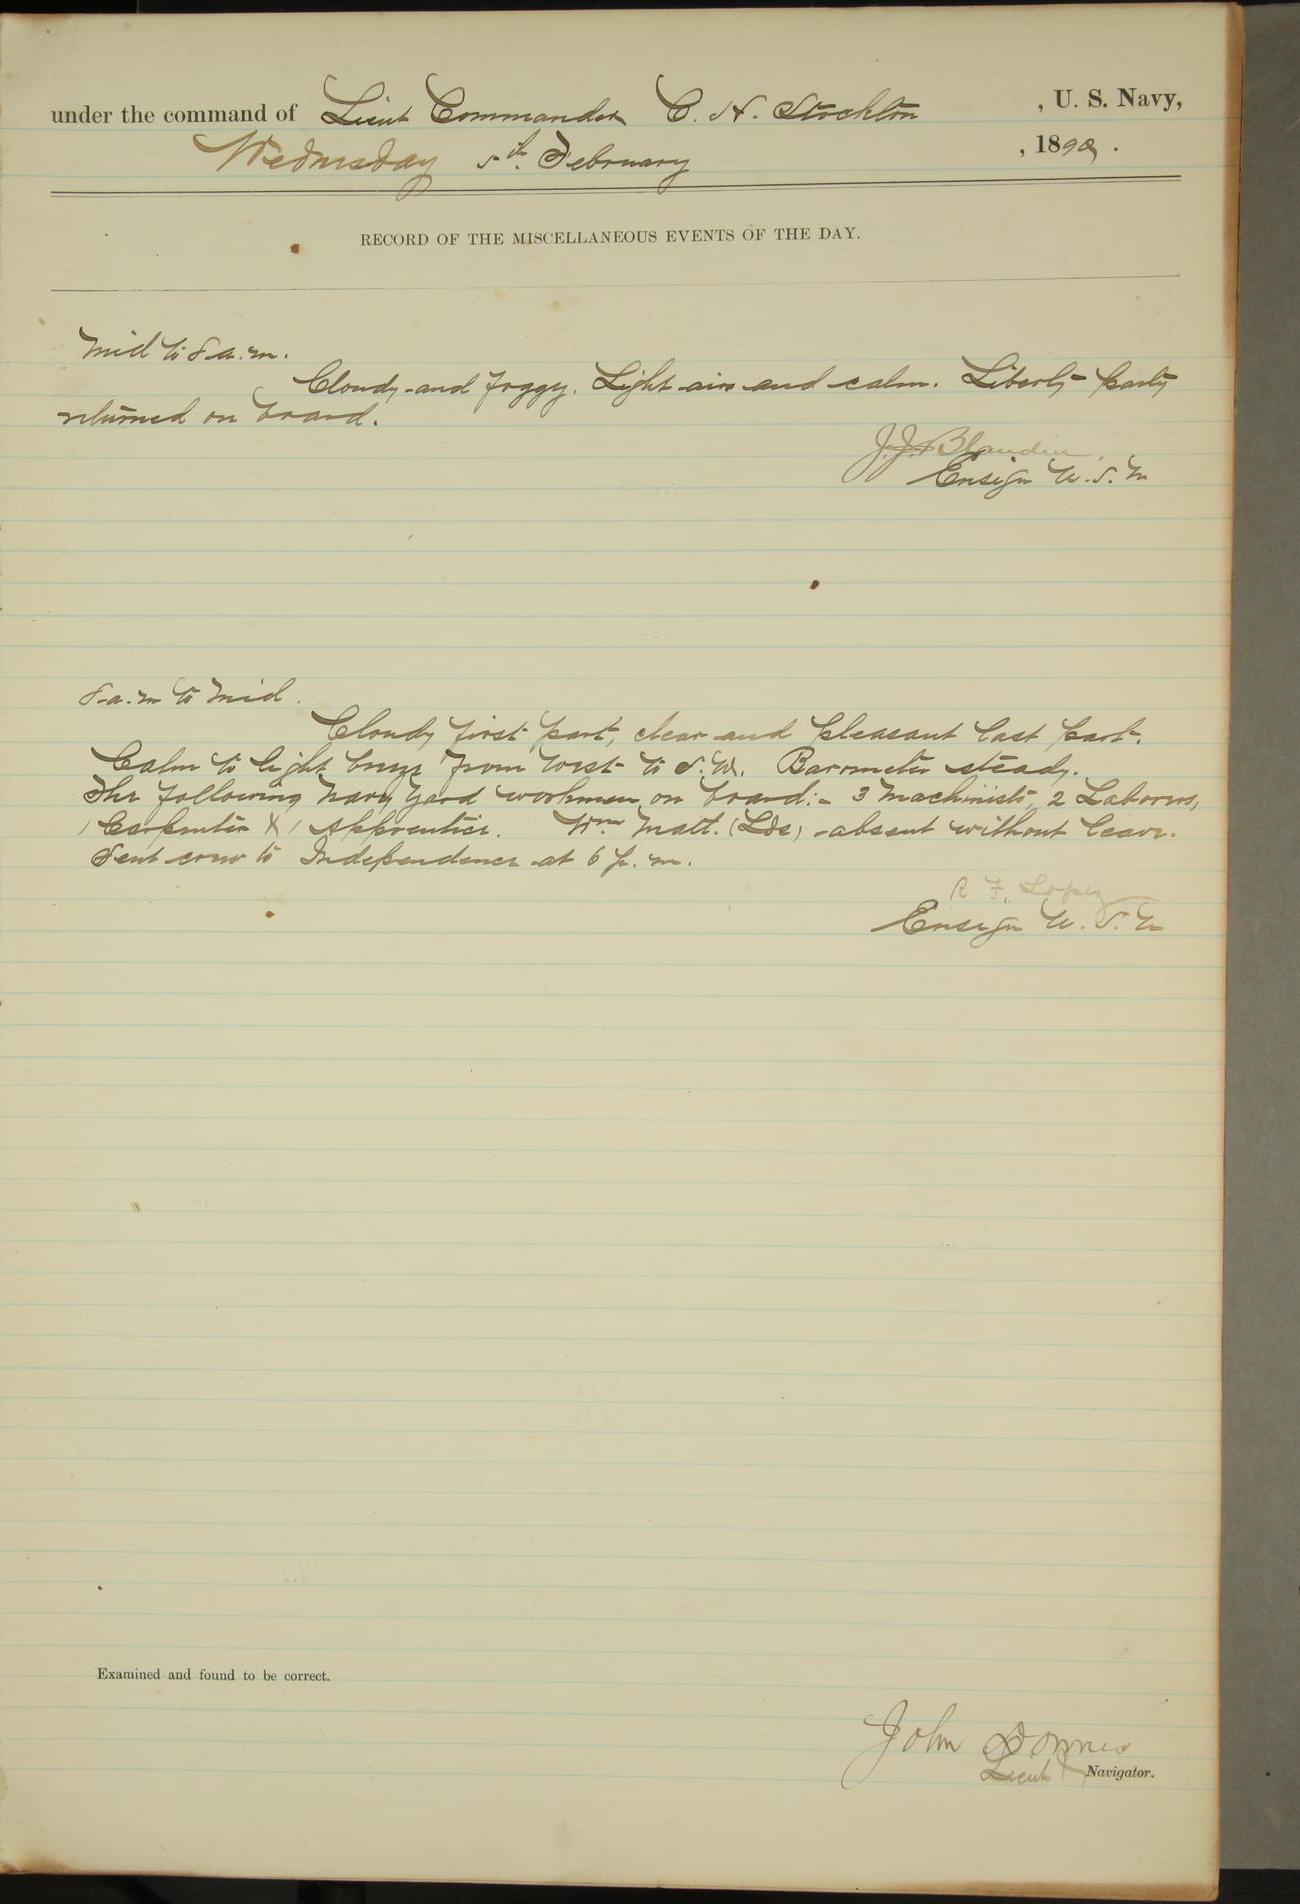 under the command of Lieut Commander C. H. Stockton , U. S. Navy,
Wednesday 5th. February , 1890.
RECORD OF THE MISCELLANEOUS EVENTS OF THE DAY.
Mid to 8 a.m.
Cloudy and foggy. Light airs and calm. Liberty party
returned on board.
J. J. Blandin.
Ensign U.S.N
8 a.m to Mid.
Cloudy first part, clear and pleasant last part.
Calm to light breeze from West to S.W. Barometer steady.
The following Navy Yard workmen on board:- 3 Machinists, 2 Laborers,
1 Carpenter & 1 Apprentice. Wm Matt. (Lds) absent without leave.
Sent crew to Independence at 6 p.m.
R F. Lopez
Ensign U.S.N
Examined and found to be correct.
John Downes
Lieut & Navigator.